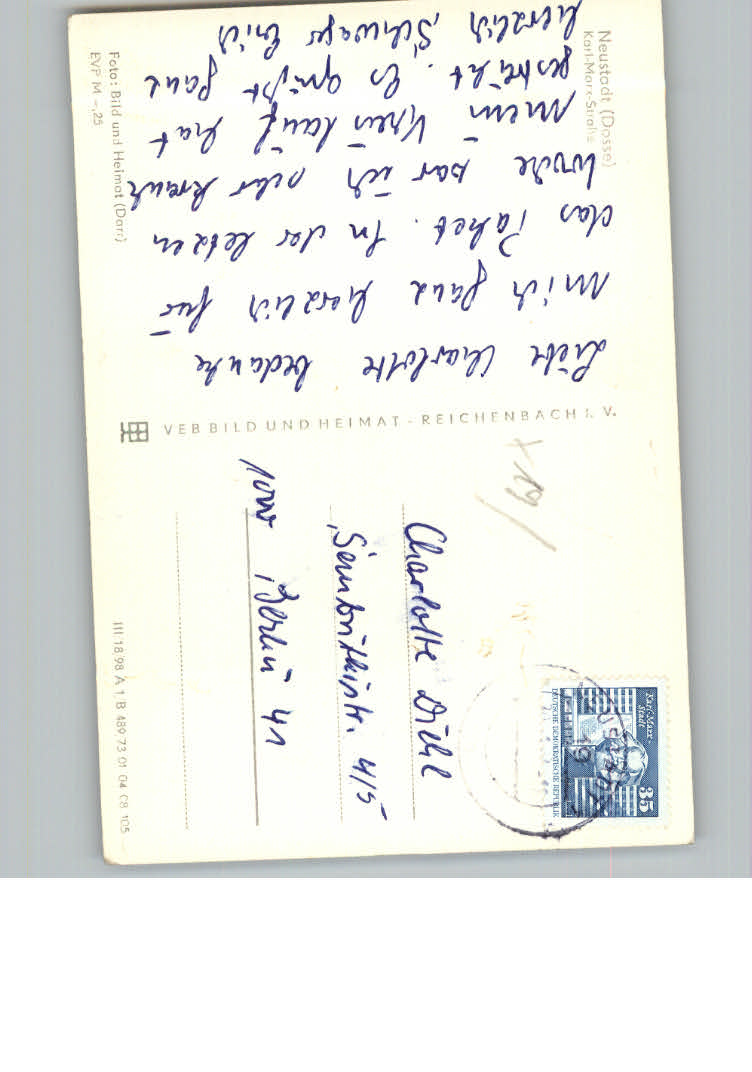 Neustadt (Dosse)
Karl-Marx-Straße
Liebe Charlotte bedanke
mich ganz herzlich für
das Paket. In der letzen
Woche war ich sehr krank
mein Kreislauf hat
gestreikt. Es grüßt ganz
herzlich Schwager Erich
Foto: Bild und Heimat (Darr)
EVP M -,25
VEB BILD UND HEIMAT - REICHENBACH i. V.
Charlotte Diehl
str. 4/5
1000 Berlin 41
Karl-Marx-
Stadt
35
DEUTSCHE DEMOKRATISCHE REPUBLIK
III 18 98 A 1 B 489 73 01 04 08 105